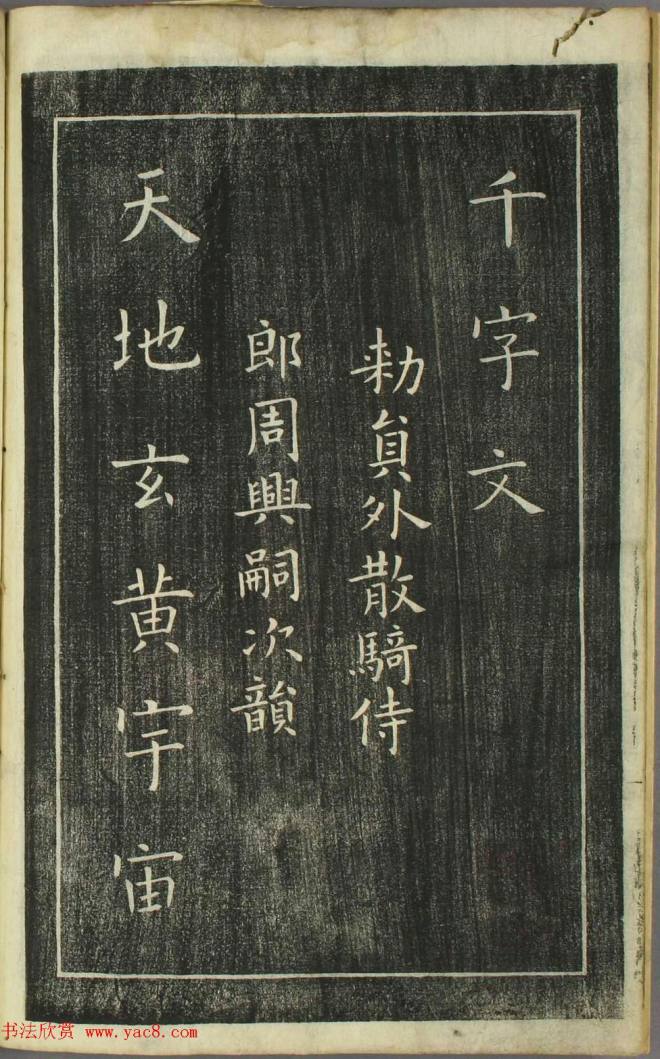 千字文
勑貟外散騎侍
郎周興嗣次韻
天地玄黃宇宙
书法欣赏 www.yac8.com